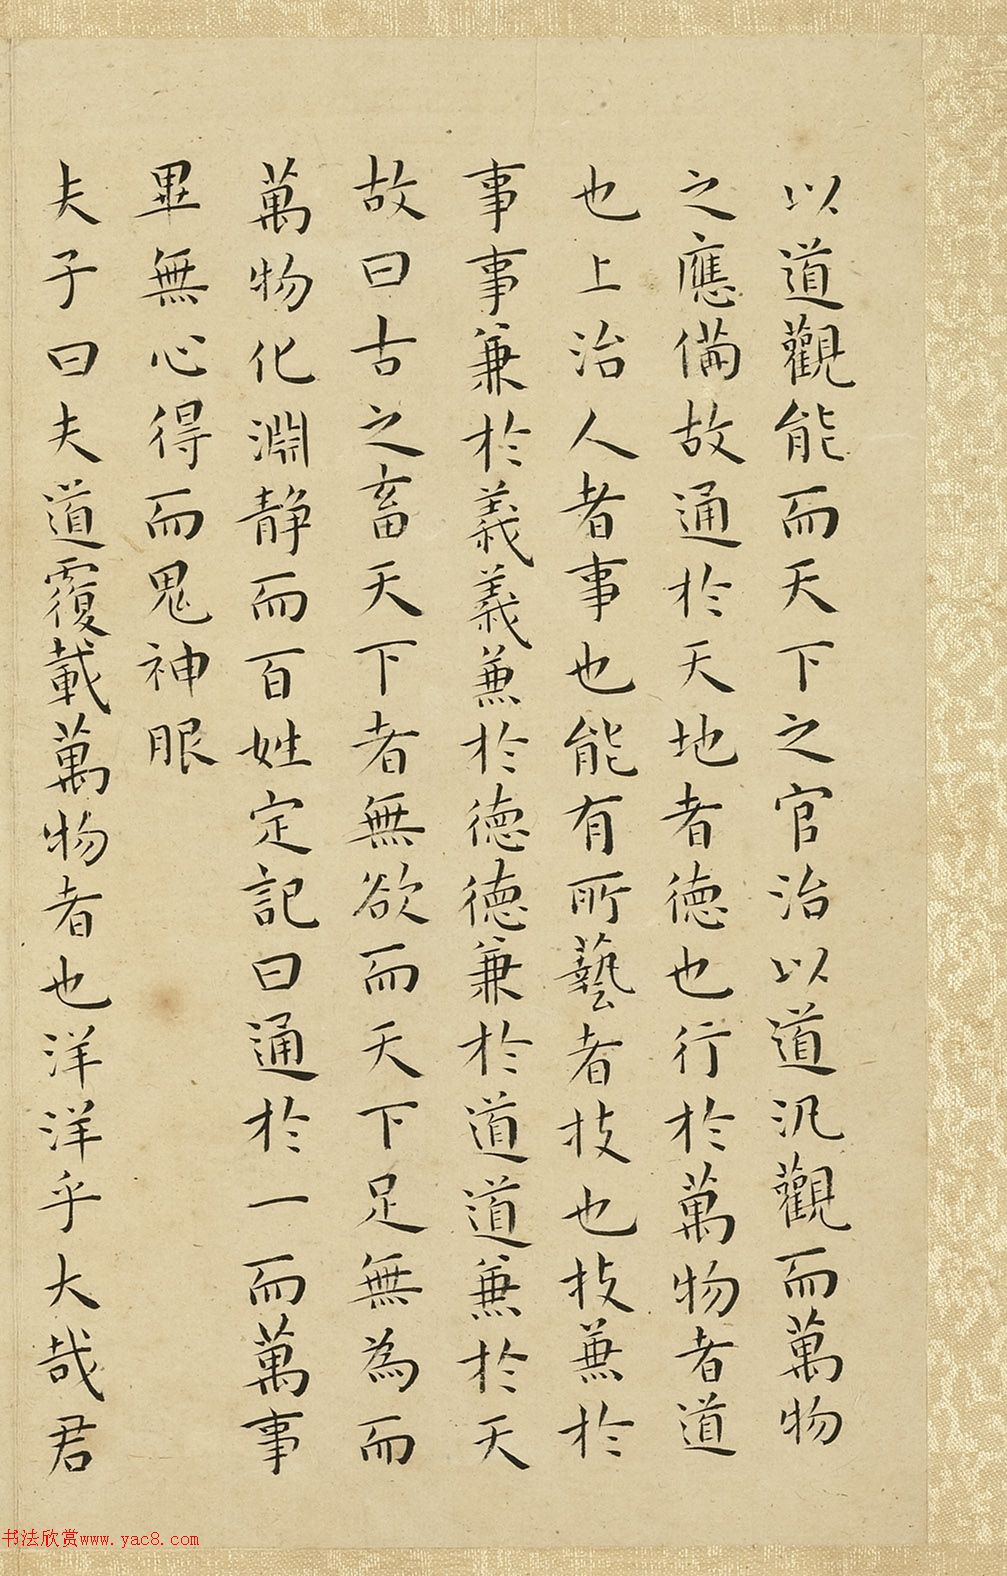 以道觀能而天下之官治以道汎觀而萬物
之應備故通於天地者德也行於萬物者道
也上治人者事也能有所藝者技也技兼於
事事兼於義義兼於德德兼於道道兼於天
故曰古之畜天下者無欲而天下足無為而
萬物化淵静而百姓定記曰通於一而萬事
畢無心得而鬼神服
夫子曰夫道覆載萬物者也洋洋乎大哉君
书法欣赏www.yac8.com